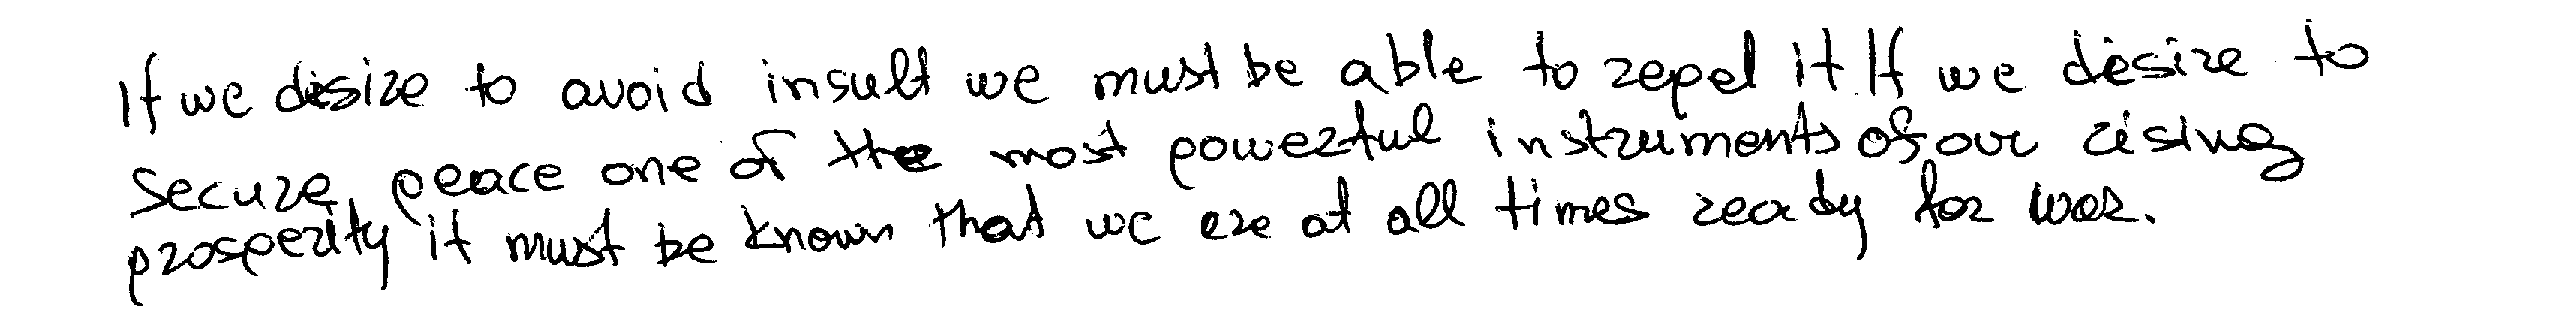 If we desire to avoid insult we must be able to repel it If we desire to
secure peace one of the most powerful instruments of our rising
prosperity it must be known that we are at all times ready for war.